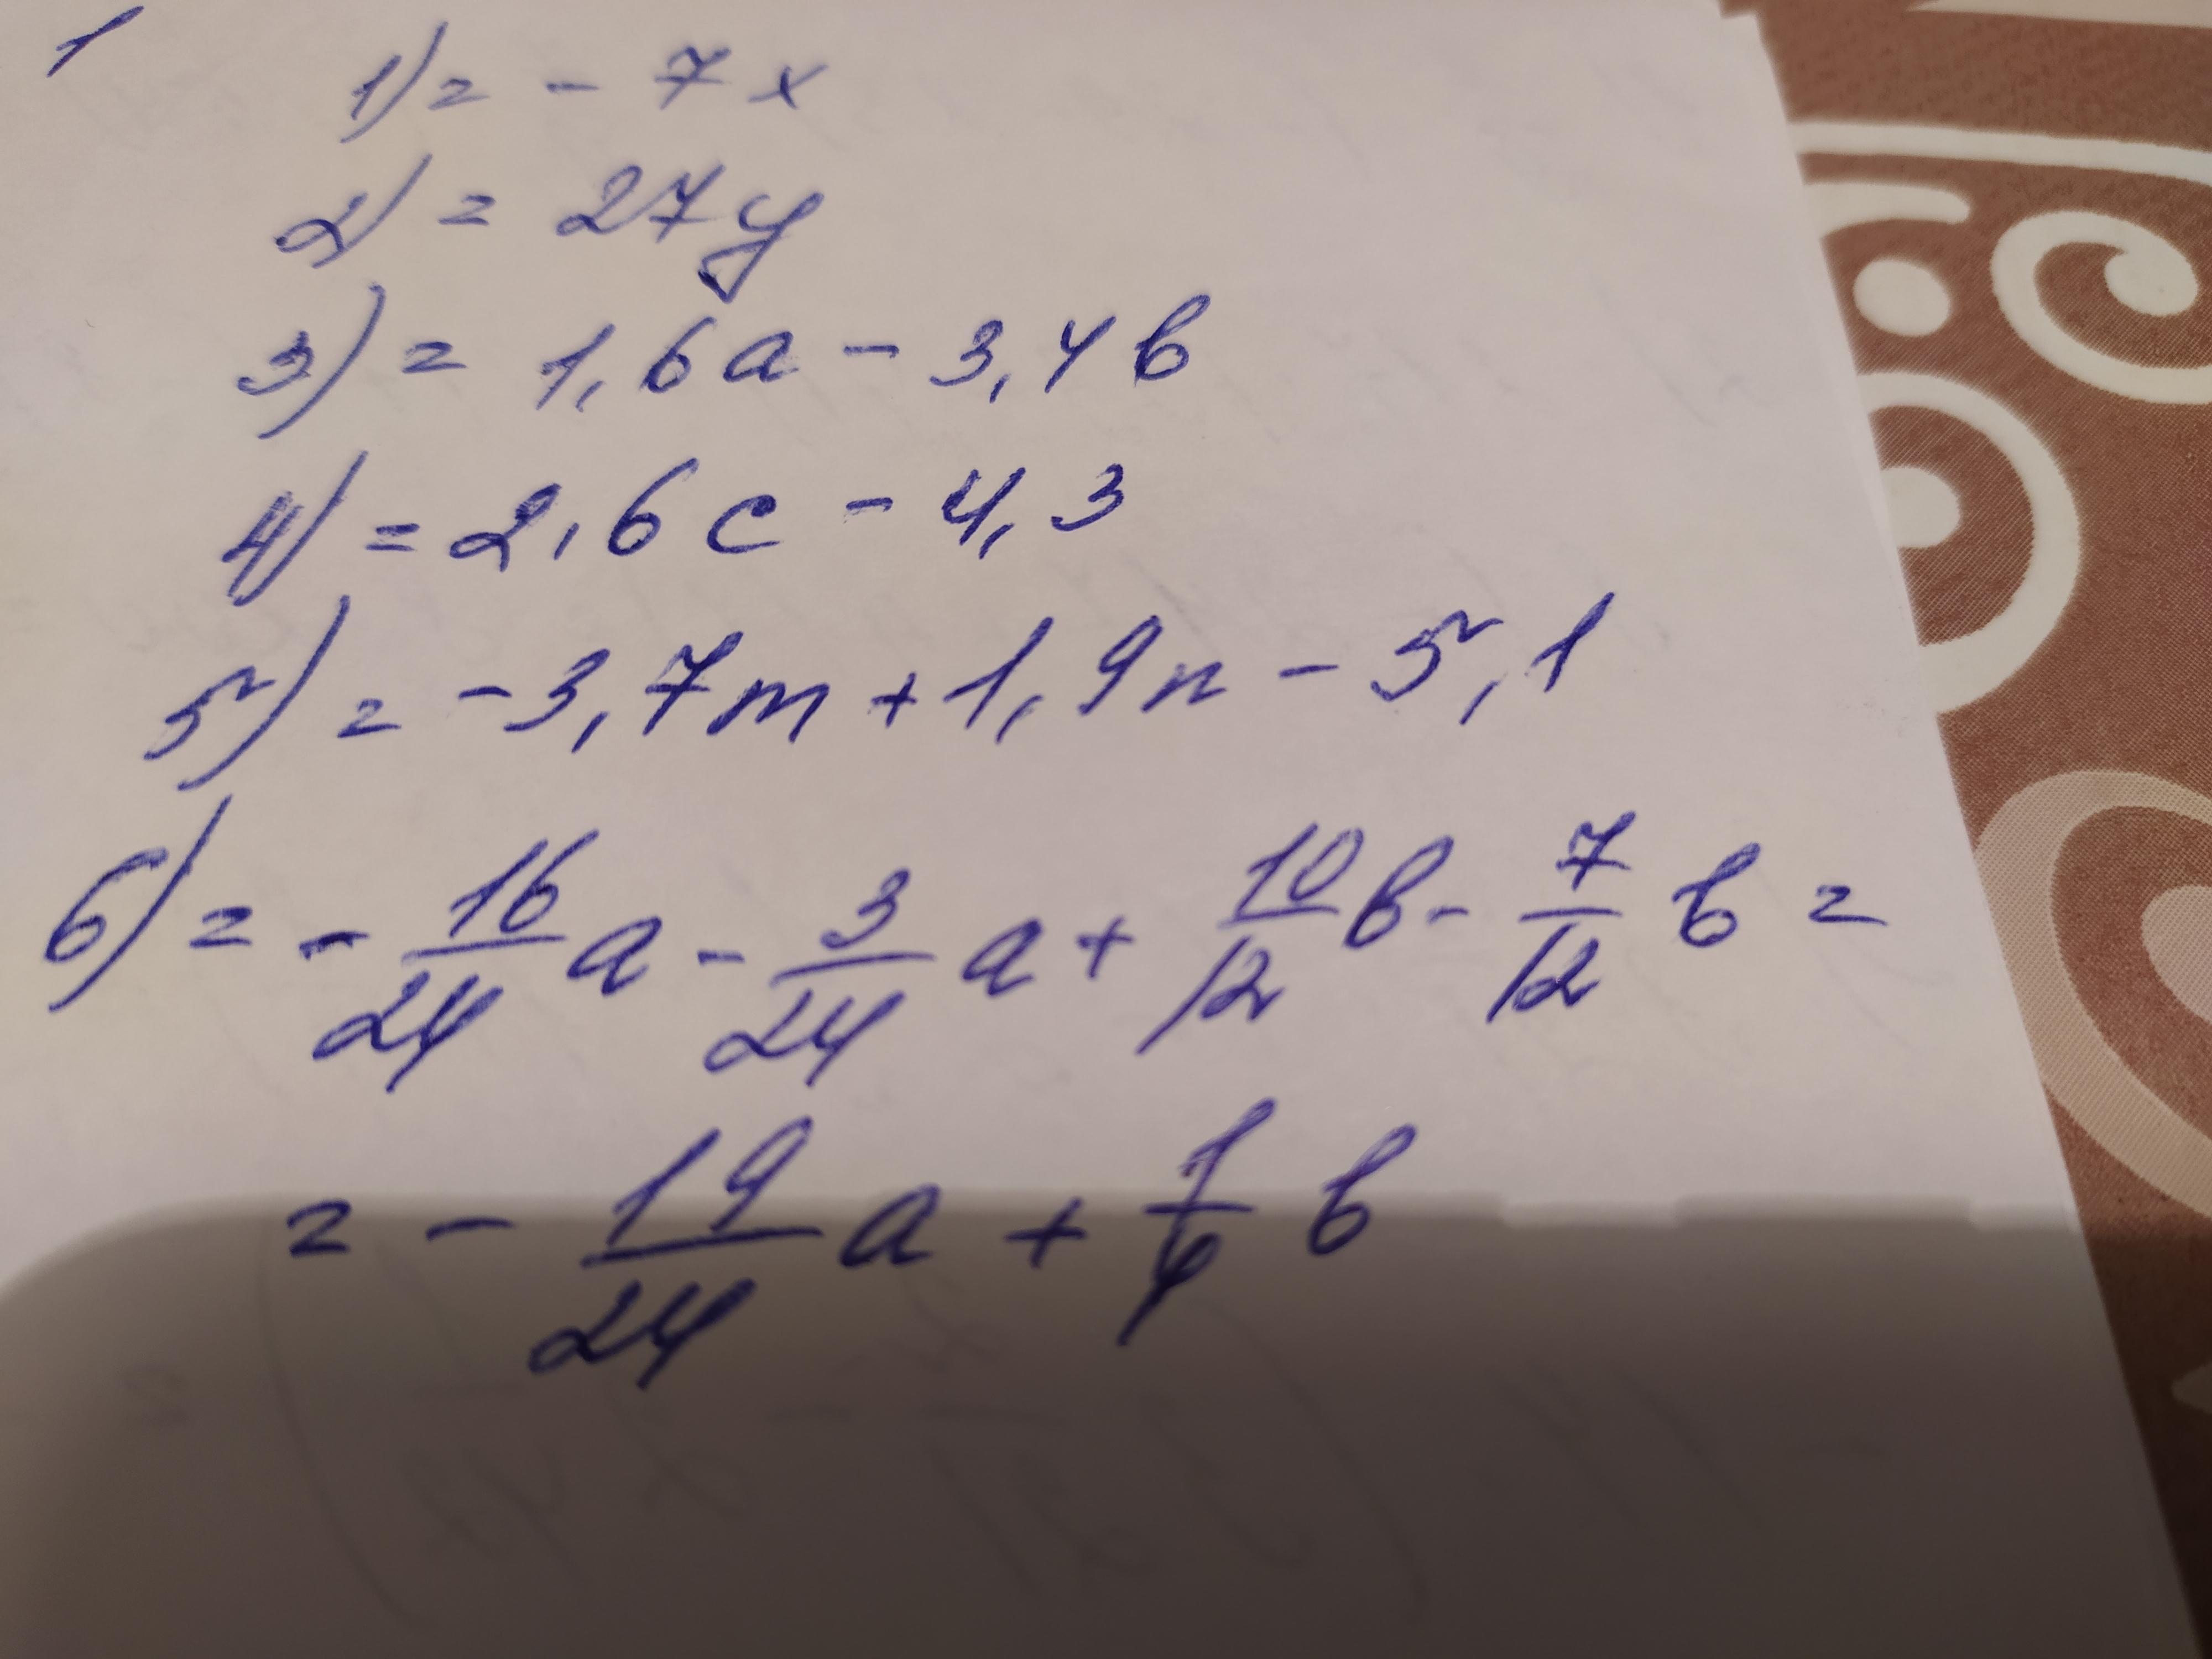 1
1) = - 7x
2) = 27y
3) = 1,6a - 3,4b
4) = 2,6c - 4,3
5) = -3,7m + 1,9n - 5,1
6) = - 16/24 a - 3/24 a + 10/12 b - 7/12 b =
= - 19/24 a + 1/4 b